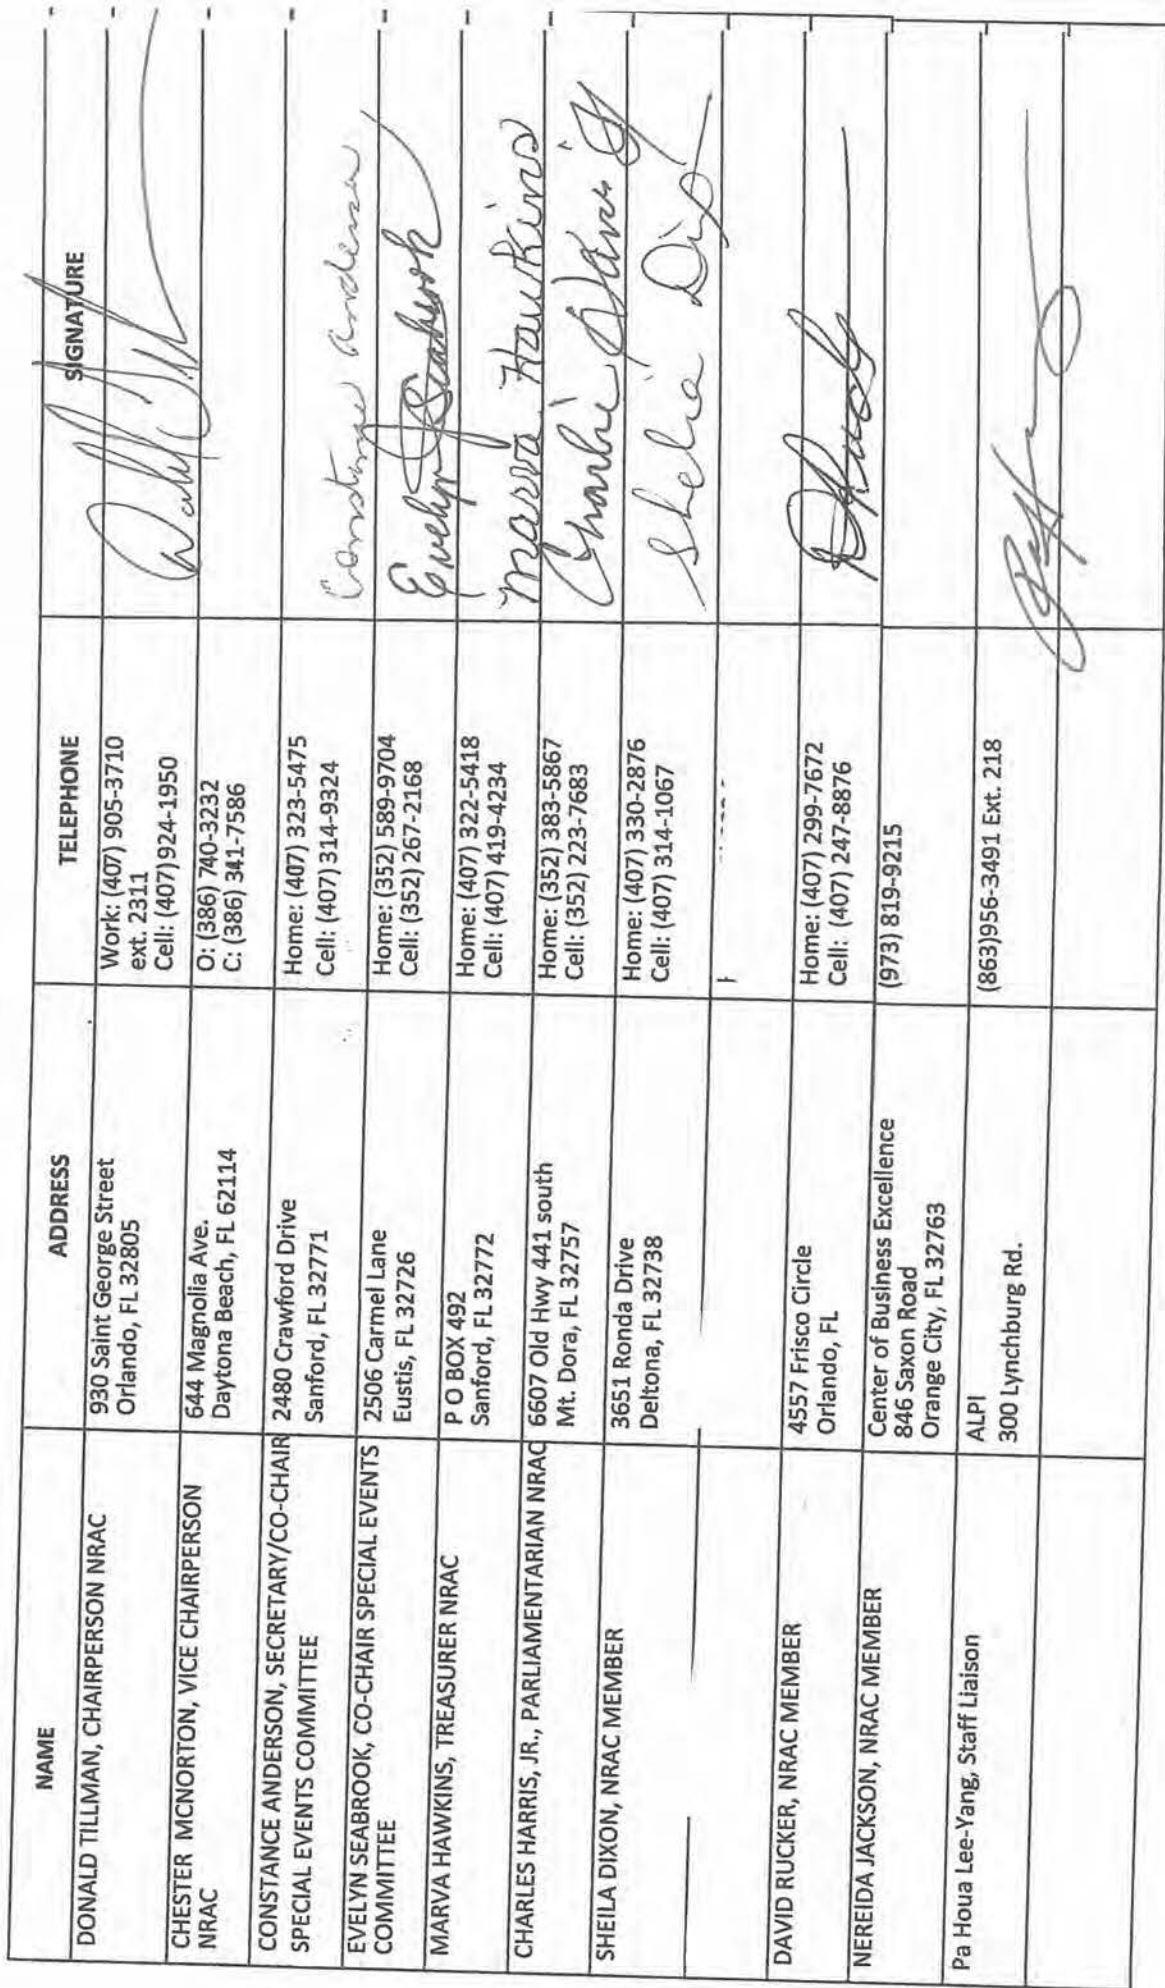 NAME ADDRESS TELEPHONE SIGNATURE
DONALD TILLMAN, CHAIRPERSON NRAC
930 Saint George Street
Orlando, FL 32805
Work: (407) 905-3710
ext. 2311
Cell: (407)924-1950
CHESTER MCNORTON, VICE CHAIRPERSON
NRAC
644 Magnolia Ave.
Daytona Beach, FL 62114
O: (386) 740-3232
C: (386) 341-7586
CONSTANCE ANDERSON, SECRETARY/CO-CHAIR
SPECIAL EVENTS COMMITTEE
2480 Crawford Drive
Sanford, FL 32771
Home: (407) 323-5475
Cell: (407) 314-9324
Constance Anderson
EVELYN SEABROOK, CO-CHAIR SPECIAL EVENTS
COMMITTEE
2506 Carmel Lane
Eustis, FL 32726
Home: (352) 589-9704
Cell: (352) 267-2168
Evelyn Seabrook
MARVA HAWKINS, TREASURER NRAC
P O BOX 492
Sanford, FL 32772
Home: (407) 322-5418
Cell: (407) 419-4234
Marva Hawkins
CHARLES HARRIS, JR., PARLIAMENTARIAN NRAC
6607 Old Hwy 441 south
Mt. Dora, FL 32757
Home: (352) 383-5867
Cell: (352) 223-7683
Charlie Harris Jr
SHEILA DIXON, NRAC MEMBER
3651 Ronda Drive
Deltona, FL 32738
Home: (407) 330-2876
Cell: (407) 314-1067
Shelia Dix
DAVID RUCKER, NRAC MEMBER
4557 Frisco Circle
Orlando, FL
Home: (407) 299-7672
Cell: (407) 247-8876
NEREIDA JACKSON, NRAC MEMBER
Center of Business Excellence
846 Saxon Road
Orange City, FL 32763
(973) 819-9215
Pa Houa Lee-Yang, Staff Liaison
ALPI
300 Lynchburg Rd.
(863)956-3491 Ext. 218